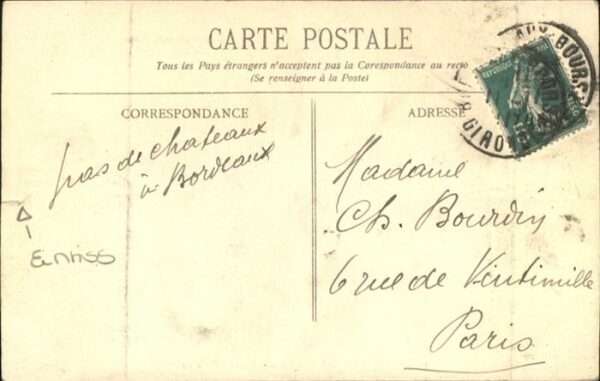 CARTE POSTALE
Tous les Pays étrangers n'acceptent pas la Corespondance au recto
(Se renseigner à la Poste)
CORRESPONDANCE
ADRESSE
pas de chateaux
à Bordeaux
Madame
Ch. Bourdin
6 rue de Vintimille
Paris
BOURG
GIRONDE